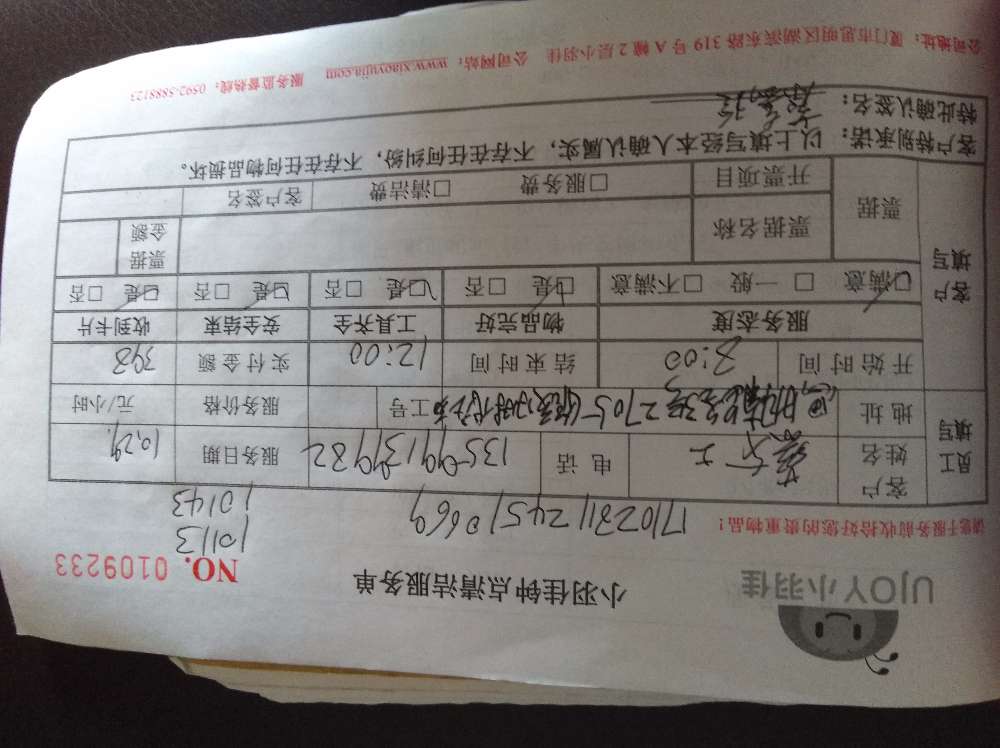 UJOY小羽佳
小羽佳钟点清洁服务单
NO. 0109233
10113
10143
请您于服务前收拾好您的贵重物品!
1710281124510669
员工填写
客户姓名 女士 电话 13599139982 服务日期 10.29.
地址 工号 服务价格 元/小时
开始时间 8:00 结束时间 12:00 实付金额 398
客户填写
服务态度 物品完好 工具齐全 安全结束 收到卡片
☑满意 □一般 □不满意 ☑是 □否 ☑是 □否 ☑是 □否 ☑是 □否
票据 票据名称 票据金额
开票项目 □服务费 □清洁费 客户签名
客户特别承诺:以上填写经本人确认属实,不存在任何纠纷,不存在任何物品损坏。
特此确认签名:
公司地址:厦门市思明区湖滨东路319号A幢2层小羽佳 公司网站:www.xiaoyujia.com 服务监督热线:0592-5888123